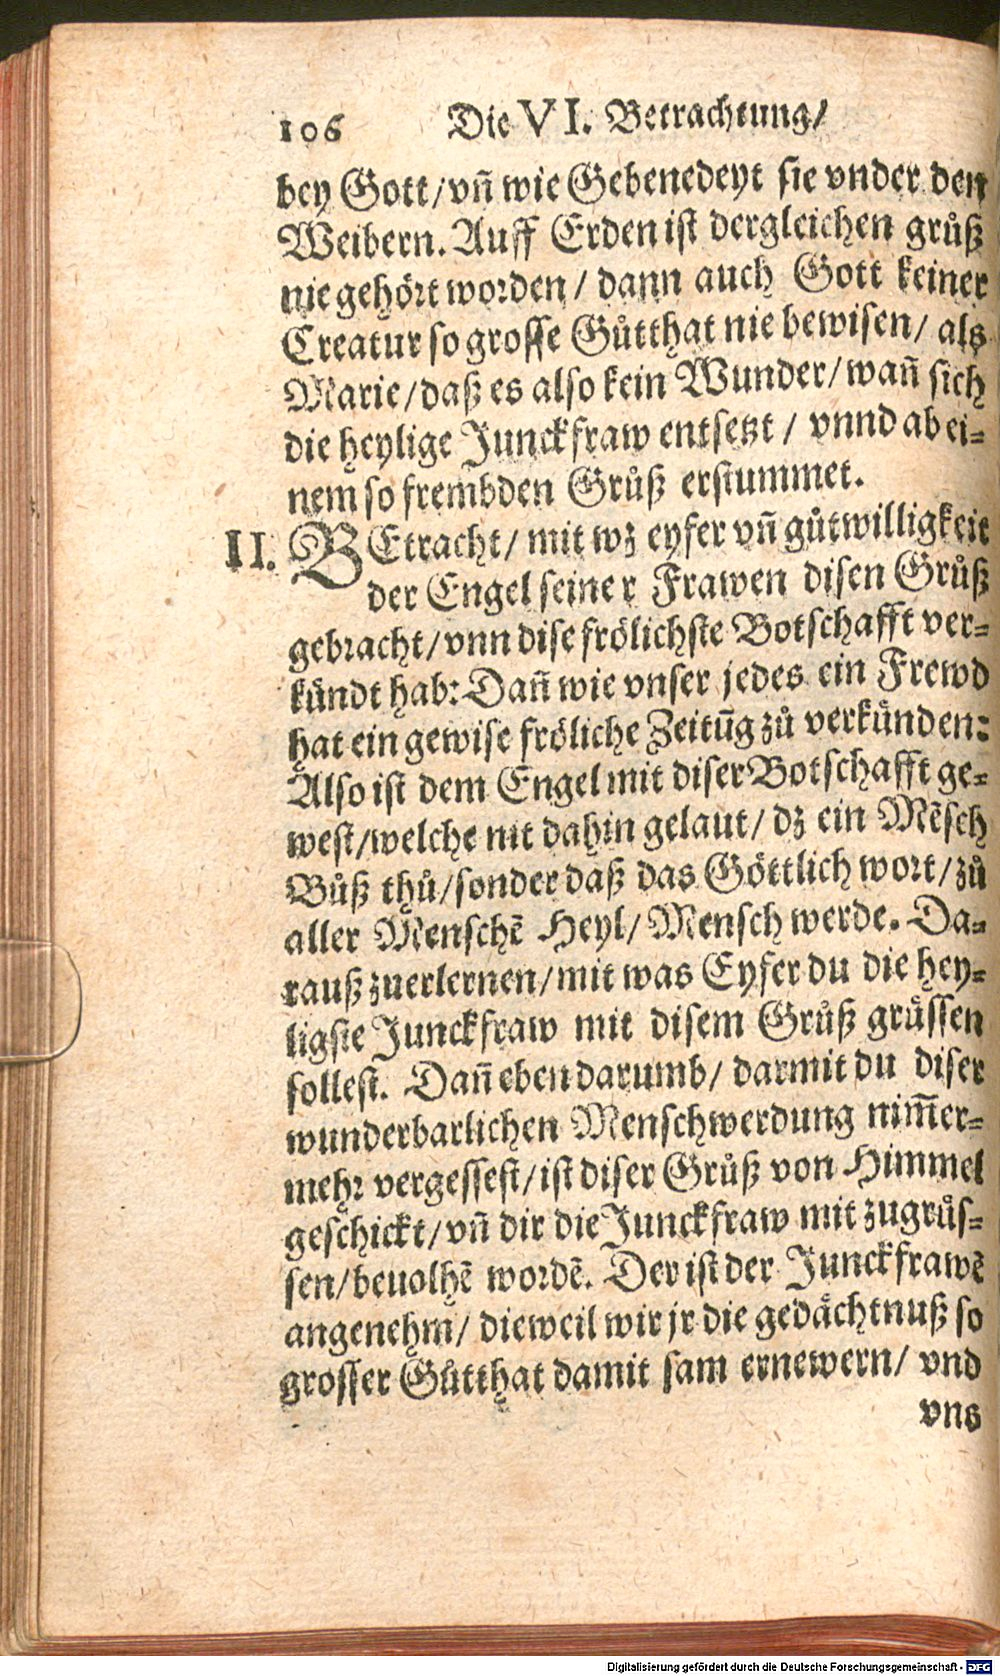 106 Die VI. Betrachtung/
bey Gott/vn̄ wie Gebenedeyt sie vnder den
Weibern. Auff Erden ist dergleichen grůß
nie gehört worden/ dann auch Gott keiner
Creatur so grosse Gůtthat nie bewisen/ als
Marie/daß es also kein Wunder/wan̄ sich
die heylige Junckfraw entsetzt / vnnd ab ei-
nem so frembden Grůß erstummet.
II. BEtracht/ mit wz eyfer vn̄ gůtwilligkeit
der Engel seiner Frawen disen Grůß
gebracht/vnn dise frölichste Botschafft ver-
kündt hab: Dan̄ wie vnser jedes ein Frewd
hat ein gewise fröliche Zeitūg zů verkünden:
Also ist dem Engel mit diser Botschafft ge-
west/welche nit dahin gelaut/ dz ein Mēsch
Bůß thů/sonder daß das Göttlich wort/zů
aller Menschē Heyl/ Mensch werde. Da-
rauß zuerlernen/mit was Eyfer du die hey-
ligste Junckfraw mit disem Grůß grüssen
sollest. Dan̄ eben darumb/ darmit du diser
wunderbarlichen Menschwerdung nim̄er-
mehr vergessest/ist diser Grůß von Himmel
geschickt/vn̄ dir die Junckfraw mit zugrüs-
sen/beuolhē wordē. Der ist der Junckfrawē
angenehm/ dieweil wir jr die gedächtnuß so
grosser Gůtthat damit sam ernewern/ vnd
vns
Digitalisierung gefördert durch die Deutsche Forschungsgemeinschaft - DFG